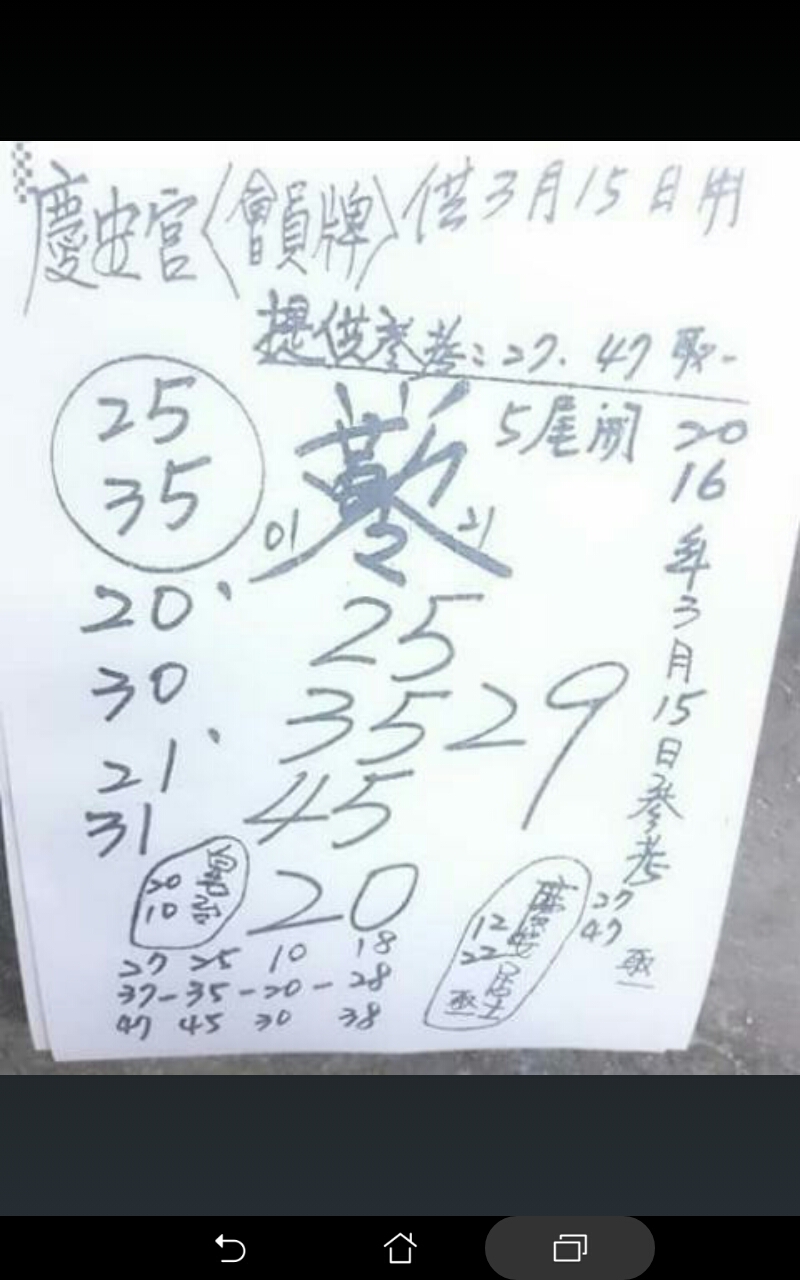 慶安宮〈會員牌〉供3月15日用
提供參考:27.47取一
25
35
01
21
5尾開
2016年3月15日參考
20、
30
21、
31
25
35
45
29
20
20
10
27 25 10 18
37-35-20-28
47 45 30 38
12
22
居士
取一
27
47
取一